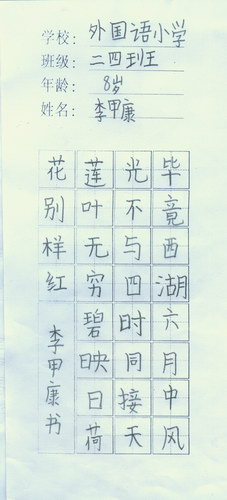 学校：外国语小学
班级：二四班
年龄：8岁
姓名：李甲康
毕竟西湖六月中风
光不与四时同接天
莲叶无穷碧映日荷
花别样红
李甲康书